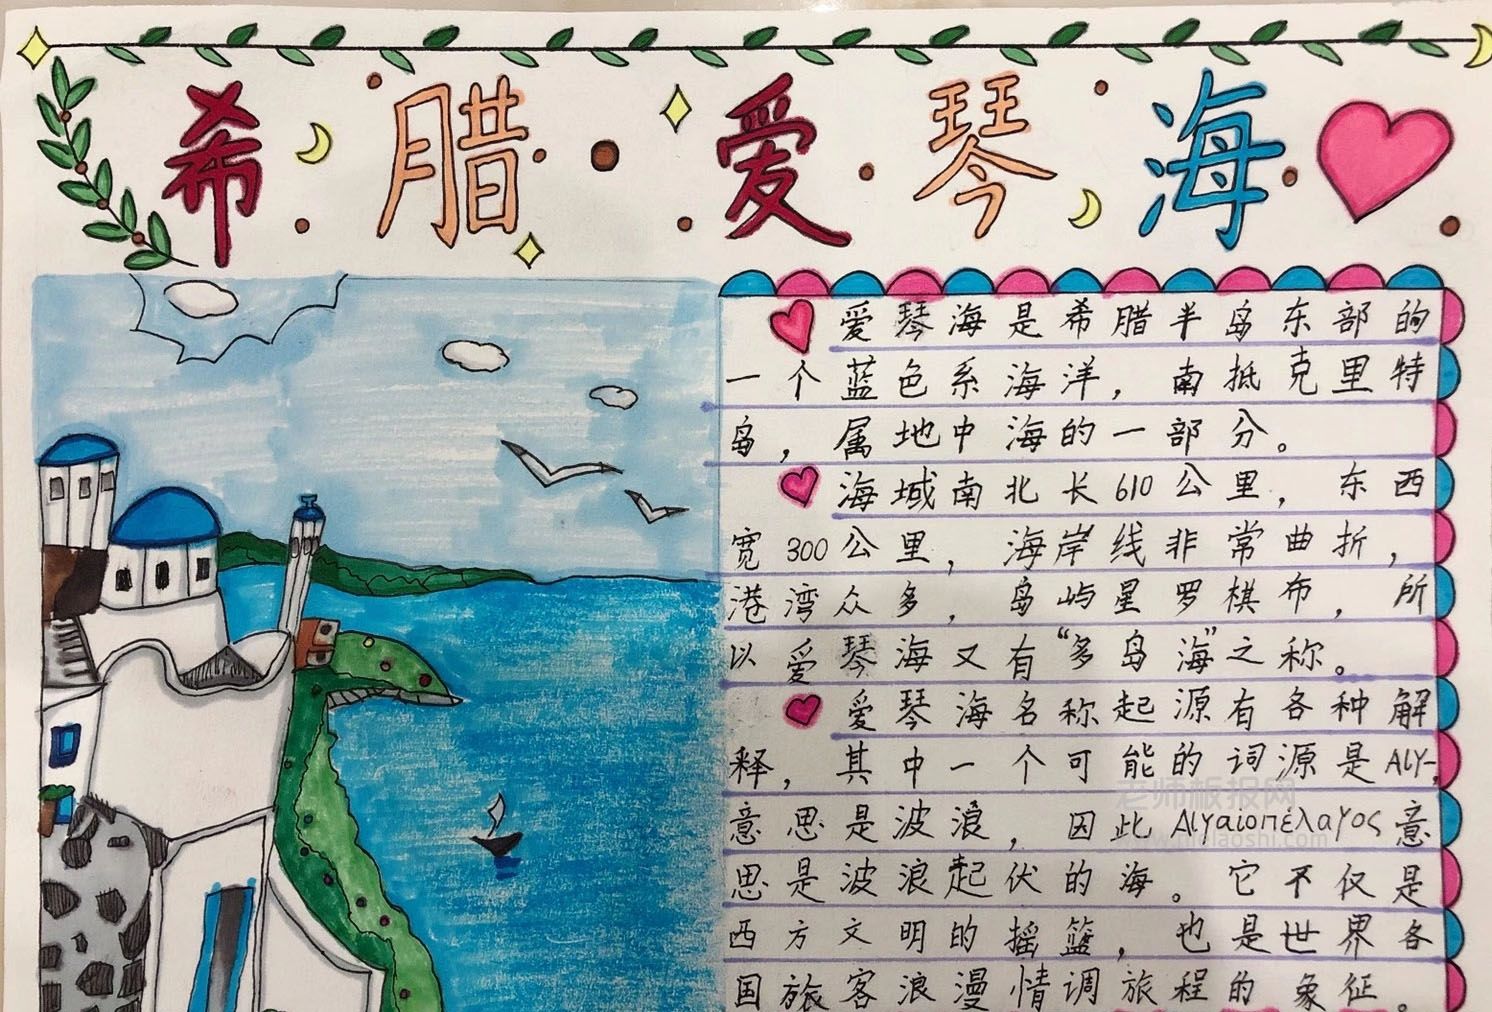 希腊爱琴海
爱琴海是希腊半岛东部的
一个蓝色系海洋，南抵克里特
岛，属地中海的一部分。
海域南北长610公里，东西
宽300公里，海岸线非常曲折，
港湾众多，岛屿星罗棋布，所
以爱琴海又有“多岛海”之称。
爱琴海名称起源有各种解
释，其中一个可能的词源是AIY-，
意思是波浪，因此AIYαιοπέλαγος意
思是波浪起伏的海。它不仅是
西方文明的摇篮，也是世界各
国旅客浪漫情调旅程的象征。
老师板报网